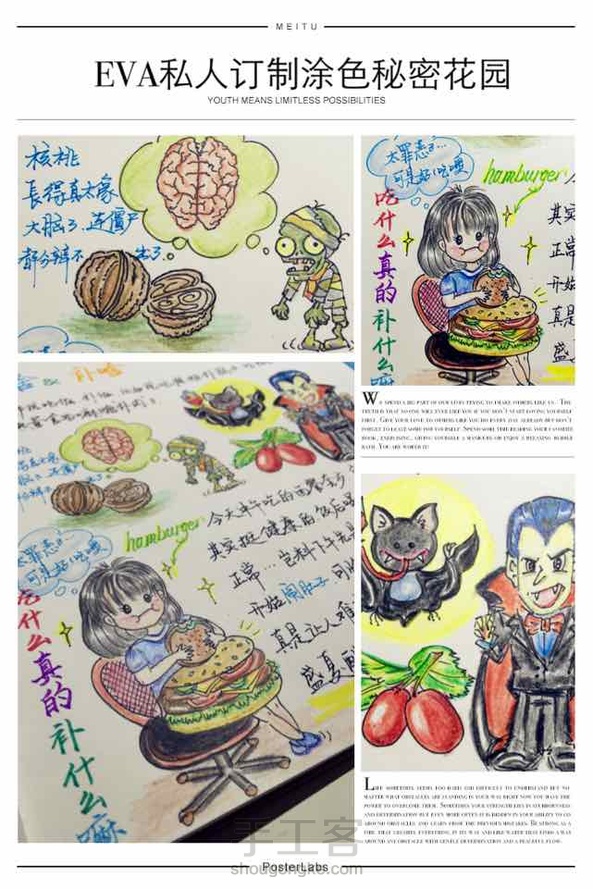 MEITU
EVA私人订制涂色秘密花园
YOUTH MEANS LIMITLESS POSSIBILITIES
核桃
長得真太象
大脑了.连僵尸
都分辨不出了.
太罪恶了...
可是好吃噢
hamburger
吃什么真的补什么嘛
其实
正常
开始
真是
盛
We spend large part of our lives trying to make others like us. The
truth is that no one will ever like you if you don't start loving yourself
first. Give your love to others like you do every day, already but don't
forget to leave some for yourself. Spend some time reading your favorite
book, exercising, giving yourself a manicure or enjoy a relaxing bubble
bath. You are worth it!
补
大脑了.连僵尸
太罪恶了...
可是好吃噢
hamburger
吃什么真的补什么嘛
其实挺健康的
正常...
开始闹肚子
真是让人难
盛夏
Life sometimes seems too hard and difficult to understand but no
matter what obstacles are standing in your way right now you have the
power to overcome them. Sometimes your strength lies in stubbornness
and determination but even more often it is hidden in your ability to go
around obstacles and learn from the previous mistakes. Be strong as a
fire that creates everything in its way and like water that finds a way
around any obstacle with gentle determination and a peaceful flow.
手工客
shougongke.com
PosterLabs